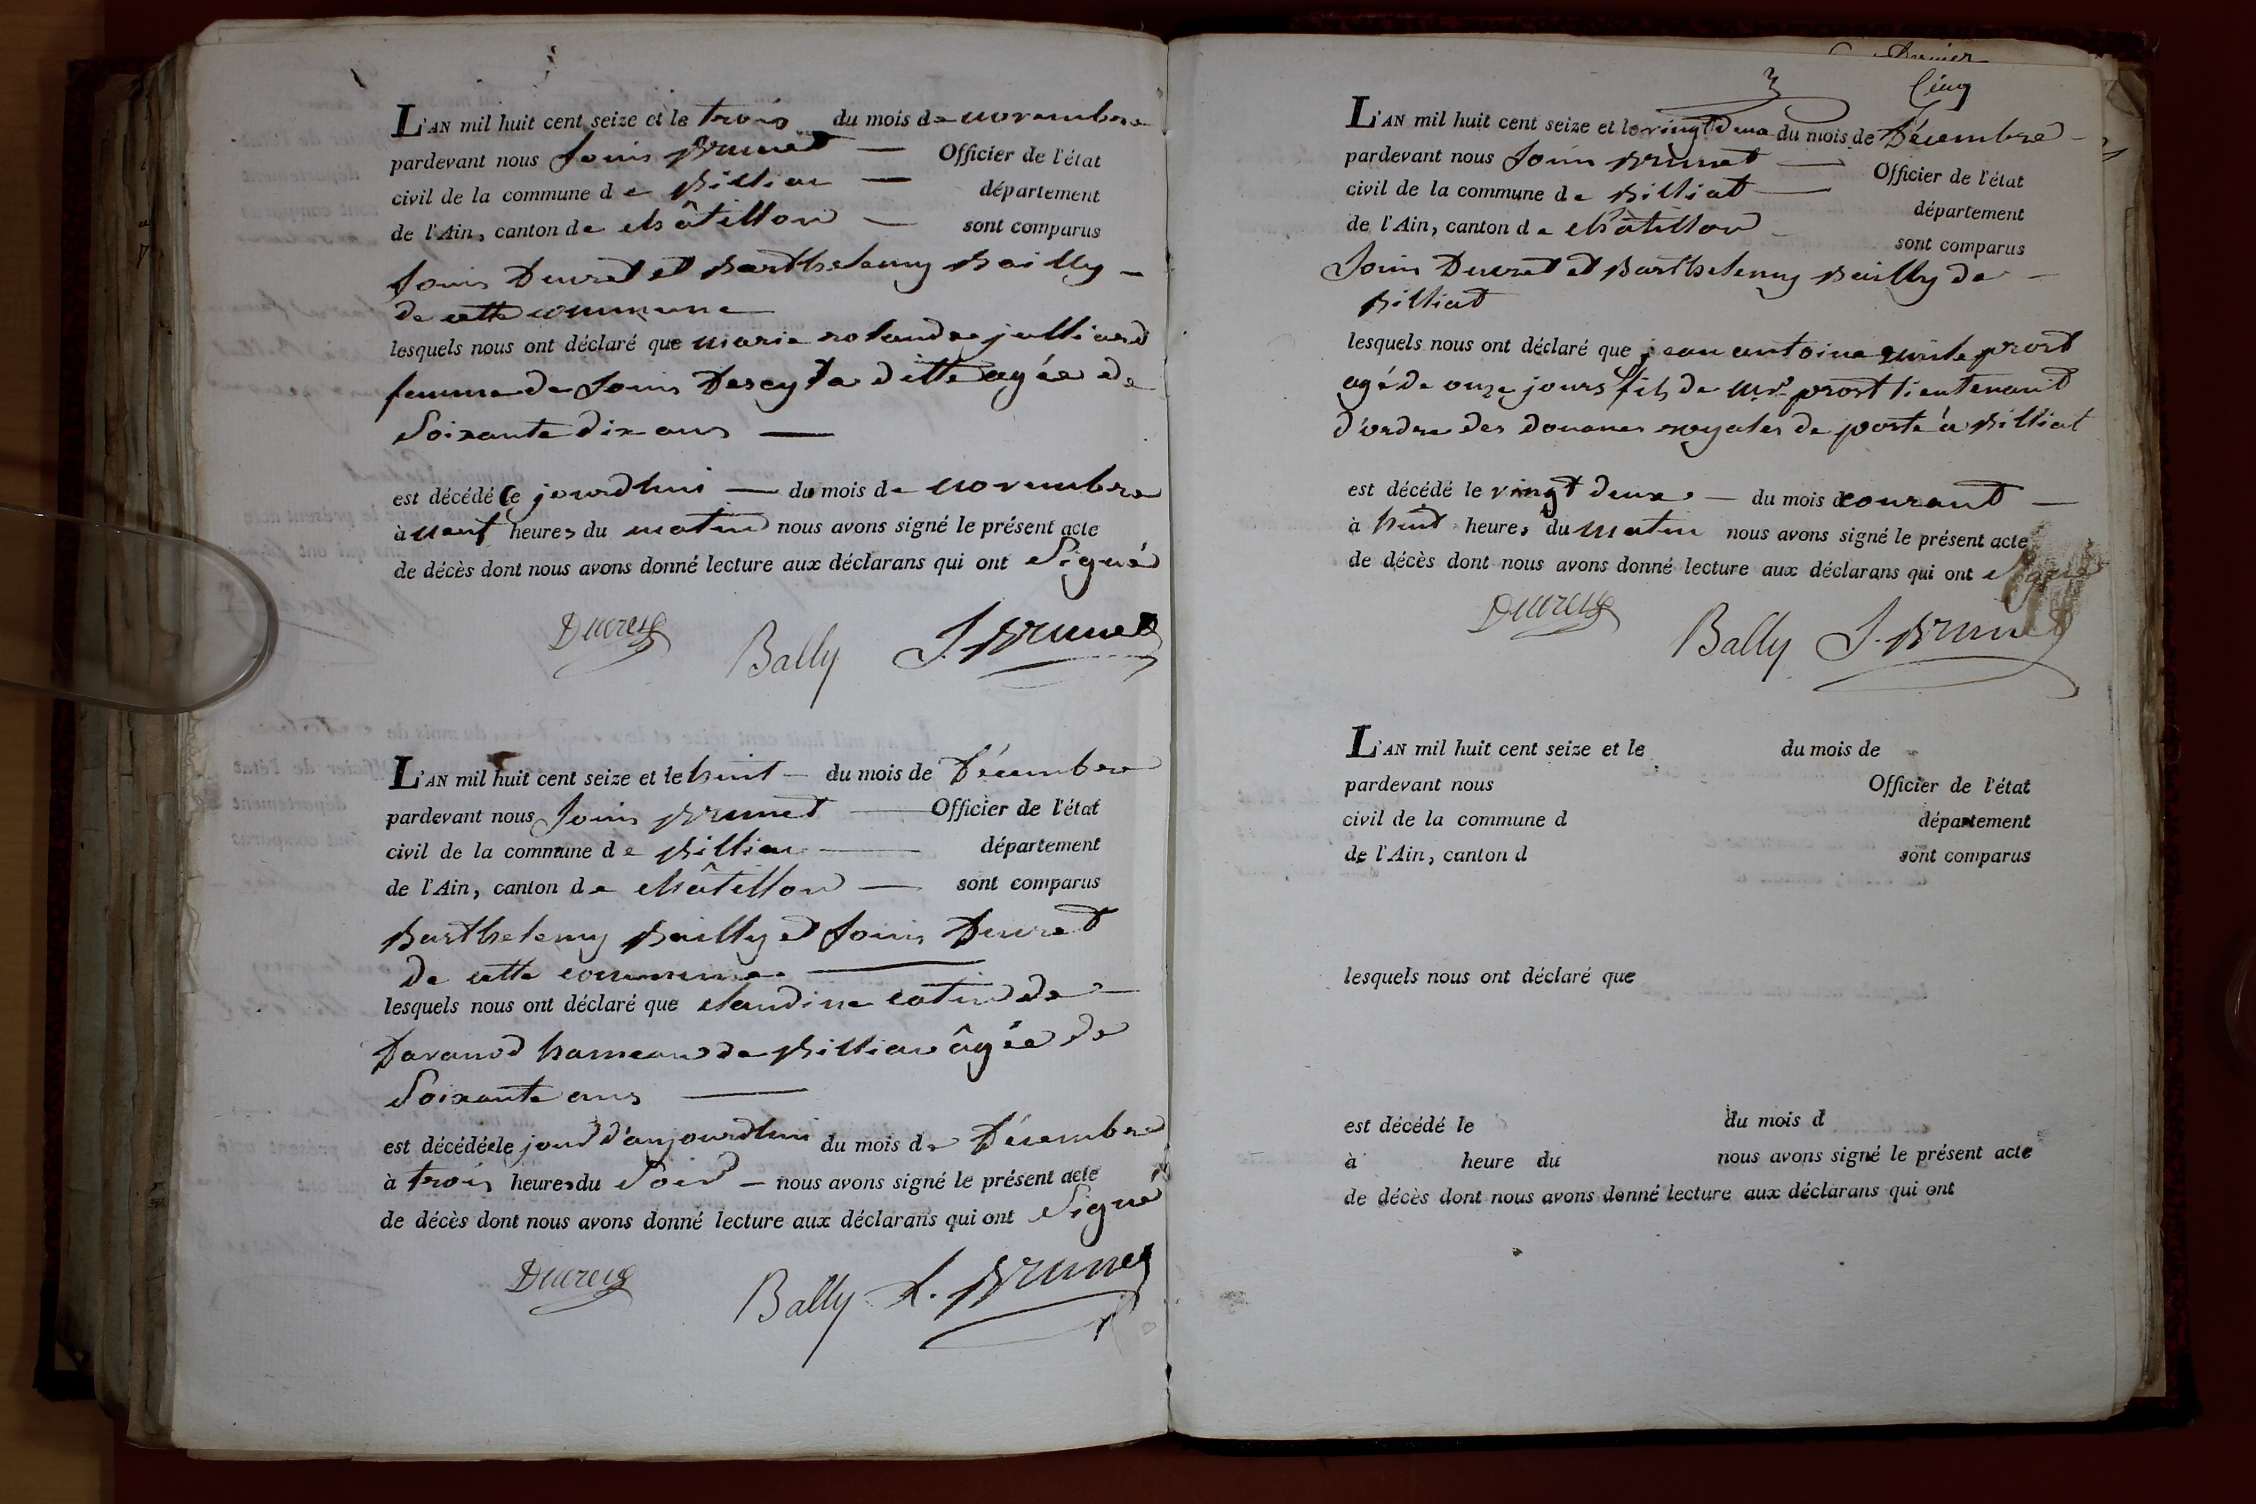 L'AN mil huit cent seize et le trois du mois de novembre
pardevant nous Louis Brunet — Officier de l'état
civil de la commune de Billiat — département
de l'Ain, canton de châtillon — sont comparus
Louis Ducret et Barthelemy Bailly —
de cette commune
lesquels nous ont déclaré que marie rolande julliard
femme de Louis ditte agée de
Soixante dix ans —
est décédé le jourdhui — du mois de novembre
à neuf heures du matin nous avons signé le présent acte
de décès dont nous avons donné lecture aux déclarans qui ont Signé
Ducret Bally L. Brunet
L'AN mil huit cent seize et le huit — du mois de Décembre
pardevant nous Louis Brunet — Officier de l'état
civil de la commune de Billiat — département
de l'Ain, canton de châtillon — sont comparus
Barthelemy Bailly et Louis Ducret
de cette commune —
lesquels nous ont déclaré que claudine catin de —
Davanod hameau de Billiat âgée de
Soixante ans —
est décédée le jour d'aujourdhui du mois de Décembre
à trois heures du Soir — nous avons signé le présent acte
de décès dont nous avons donné lecture aux déclarans qui ont Signé
Ducret Bally L. Brunet
3 Cinq
L'AN mil huit cent seize et le vingt deux du mois de Décembre —
pardevant nous Louis Brunet — Officier de l'état
civil de la commune de Billiat — département
de l'Ain, canton de châtillon — sont comparus
Louis Ducret et Barthelemy Bailly de —
Billiat
lesquels nous ont déclaré que jean antoine prost
agé de onze jours fils de Mr. prost lieutenant
d'ordre des douanes royales de poste à Billiat
est décédé le vingt deux — du mois courant —
à huit heures du matin nous avons signé le présent acte
de décès dont nous avons donné lecture aux déclarans qui ont Signé
Ducret Bally L. Brunet
L'AN mil huit cent seize et le du mois de
pardevant nous Officier de l'état
civil de la commune d département
de l'Ain, canton d sont comparus
lesquels nous ont déclaré que
est décédé le du mois d
à heure du nous avons signé le présent acte
de décès dont nous avons donné lecture aux déclarans qui ont